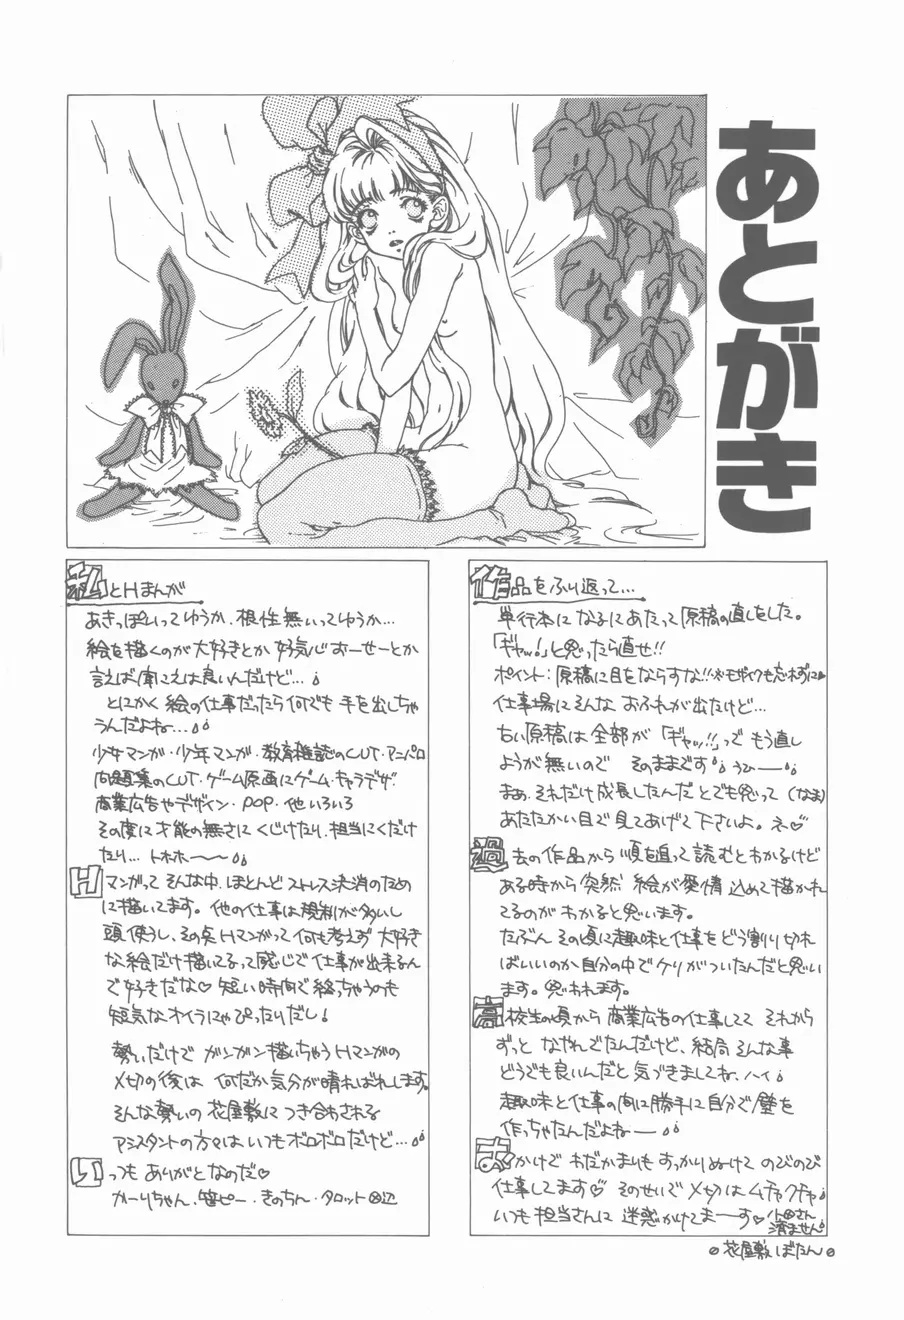 あとがき
私とHまんが
あきっぽいってゆうか、根性無いってゆうか…
絵を描くのが大好きとか好奇心おーせーとか
言えば聞こえは良いんだけど…
とにかく絵の仕事だったら何でも手を出しちゃ
うんだよね…
少女マンガ・少年マンガ・教育雑誌のCUT・アニパロ
問題集のCUT・ゲーム原画にゲーム・キャラデザ
商業広告やデザイン・POP・他いろいろ
その度に才能の無さにくじけたり、担当にくだけ
たり… トホホ〜〜
Hマンガってそんな中、ほとんどストレス決消のため
に描いてます。他の仕事は規制が多いし
頭使うし、その点Hマンガって何も考えず大好き
な絵だけ描いてるって感じで仕事が出来るん
で好きだな♡ 短い時間で終っちゃうのも
短気なオイラにゃぴったりだし!
勢いだけでガンガン描いちゃうHマンガの
〆切の後は何だか気分が晴ればれします。
そんな勢いの花屋敷につき合わされる
アシスタントの方々はいつもボロボロだけど…
いつもありがとなのだ♡
かーりちゃん、笹ピー・きのちん・タロット
作品をふり返って…
単行本になるにあたって原稿の直しをした。
「ギャッ!」と思ったら直せ!!
ポイント:原稿に目をならすな!!※モザイクも忘れずに
仕事場にそんなおふれが出たけど…
古い原稿は全部が「ギャッ!!」っでもう直し
ようが無いので そのままです うひーー
まぁ、それだけ成長したんだとでも思って(なま)
あたたかい目で見てあげて下さいよ。ネ♡
過去の作品から順を追って読むとわかるけど
ある時から突然絵が愛情込めて描かれ
てるのがわかると思います。
たぶんその頃に趣味と仕事をどう割り切れ
ばいいのか自分の中でケリがついたんだと思い
ます。思われます。
高校生の頃から商業広告の仕事してて それから
ずっとなやんでたんだけど、結局そんな事
どうでも良いんだと気づきましてね、ハイ
趣味と仕事の間に勝手に自分で壁を
作っちゃたんだよねー
おかげでわだかまりもすっかりぬけてのびのび
仕事してます♡ そのせいで〆切はムチャクチャ
いつも担当さんに迷惑かけてまーーす♡ 小田さん
済ません
花屋敷ぼたん